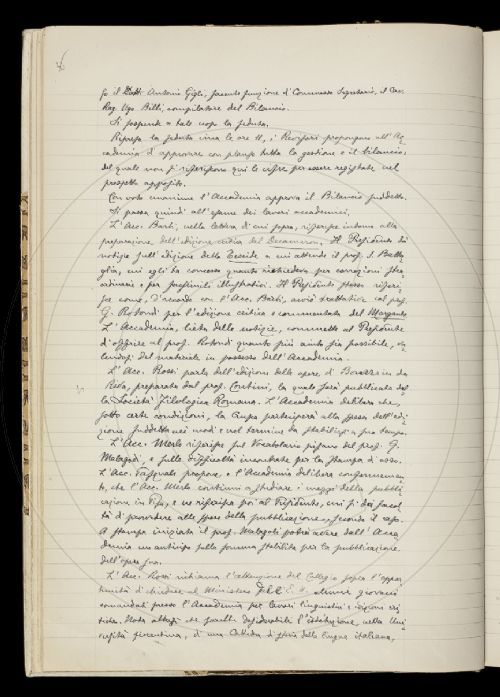 fo il Dott. Antonio Gigli, facente funzione di Commesso Segretario, il Cav.
Rag. Ugo Billi, compilatore del Bilancio.
Si sospende a tale uopo la seduta.
Ripresa la seduta circa le ore 11, i Revisori propongono all'Ac
cademia d'approvare con plauso tutta la gestione e il bilancio;
del quale non si riferiscono qui le cifre per essere registrate nel
prospetto apposito.
Con voto unanime l'Accademia approva il Bilancio suddetto.
Si passa quindi all'esame dei lavori accademici.
L'Acc. Barbi, nella lettera di cui sopra, riferisce intorno alla
preparazione dell'edizione critica del Decameron. Il Presidente dà
notizie sull'edizione della Teseide a cui attende il prof. S. Batta
glia, cui egli ha concesso quanto richiedeva per correzioni stra
ordinarie e per facsimili illustrativi. Il Presidente stesso riferi
sce come, d'accordo con l'Acc. Barbi, avviò trattative col prof.
G. Rotondi per l'edizione critica e commentata del Morgante.
L'Accademia, lieta delle notizie, commette al Presidente
d'offrire al prof. Rotondi quanto più aiuto sia possibile, va
lendosi del materiale in possesso dell'Accademia.
L'Acc. Rossi parla dell'edizione delle opere di Bonvesin da
Riva, preparata dal prof. Contini, la quale sarà pubblicata dal
la Società Filologica Romana. L'Accademia delibera che,
sotto certe condizioni, la Crusca parteciperà alla spesa dell'edi
zione suddetta nei modi e nel termine da stabilirsi a suo tempo.
L'Acc. Merlo riferisce sul Vocabolario pisano del prof. G.
Malagoli, e sulle difficoltà incontrate per la stampa d'esso.
L'Acc. Pasquali propone, e l'Accademia delibera conformemen
te, che l'Acc. Merlo continui a studiare i mezzi della pubbli
cazione in Pisa, e ne riferisca poi al Presidente, cui si dà facol
tà di provvedere alle spese della pubblicazione, secondo il caso.
A stampa iniziata il prof. Malagoli potrà avere dall'Acca
demia un anticipo sulla somma stabilita per la pubblicazione
dell'opera sua.
L'Acc. Rossi richiama l'attenzione del Collegio sopra l'oppor
tunità di chiedere al Ministero dell'E. N. alcuni giovani
comandati presso l'Accademia per lavori linguistici e edizioni cri
tiche. Nota altresì che sarebbe desiderabile l'istituzione, nella Uni
versità fiorentina, di una Cattedra di storia della lingua italiana,